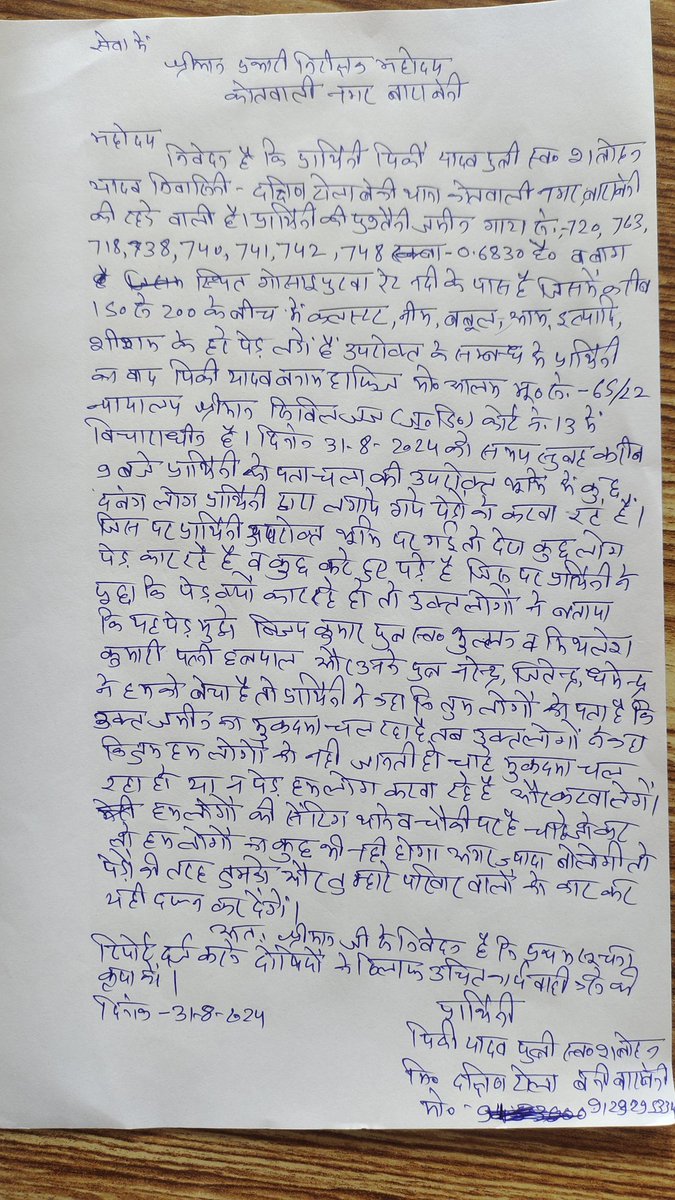 सेवा में
श्रीमान प्रभारी निरीक्षक महोदय
कोतवाली नगर बाराबंकी
महोदय
निवेदन है कि प्रार्थिनी पिंकी यादव पुत्री स्व०
यादव निवासिनी - दक्षिण टोला बंकी थाना कोतवाली नगर बाराबंकी
की रहने वाली है। प्रार्थिनी की पुश्तैनी जमीन गाटा सं०-720, 763,
718, 738, 740, 741, 742, 748 रकबा-0.6830 है० व बाग
स्थित गोसाईपुरवा रेट नदी के पास है जिसमें करीब
150 से 200 के बीच में नीम, बबूल, आम, इत्यादि,
शीशम के हरे पेड़ लगे हैं उपरोक्त के सम्बन्ध में प्रार्थिनी
का वाद पिंकी यादव बनाम हाफिज मो० आलम मु० सं०-65/22
न्यायालय श्रीमान सिविल जज (जू०डि०) कोर्ट नं० 13 में
विचाराधीन है। दिनांक 31-8-2024 को समय सुबह करीब
9 बजे प्रार्थिनी को पता चला की उपरोक्त भूमि में कुछ
दबंग लोग प्रार्थिनी द्वारा लगाये गये पेड़ों को कटवा रहे हैं।
जिस पर प्रार्थिनी उपरोक्त भूमि पर गई तो देखा कुछ लोग
पेड़ काट रहे है व कुछ कटे हुए पड़े है जिस पर प्रार्थिनी ने
पूछा कि पेड़ क्यों काट रहे हो तो उक्त लोगों ने बताया
कि यह पेड़ मुझे विजय कुमार पुत्र स्व० व मिथलेश
कुमारी पत्नी और उनके पुत्र नरेन्द्र, जितेन्द्र, धर्मेन्द्र
ने हमको बेचा है तो प्रार्थिनी ने कहा कि तुम लोगों को पता है कि
उक्त जमीन का मुकदमा चल रहा है तब उक्त लोगों ने कहा
कि तुम हम लोगों को नही जानती हो चाहे मुकदमा चल
रहा हो या न पेड़ हम लोग कटवा रहे है और कटवा लेगें।
हम लोगों की सेंटिग थाने व चौकी पर है चाहे जो कर
लो हम लोगों का कुछ भी नही होगा अगर ज्यादा बोलोगी तो
पेड़ों की तरह तुमको और तुम्हारे परिवार वालों को काट कर
यही दफन कर देंगे।
अतः श्रीमान जी से निवेदन है कि प्रथम सूचना
रिपोर्ट दर्ज करके दोषियों के खिलाफ उचित कार्यवाही करने की
कृपा करें।
दिनांक -31-8-2024
प्रार्थिनी
पिंकी यादव पुत्री स्व०
नि० दक्षिण टोला बंकी बाराबंकी
मो० -